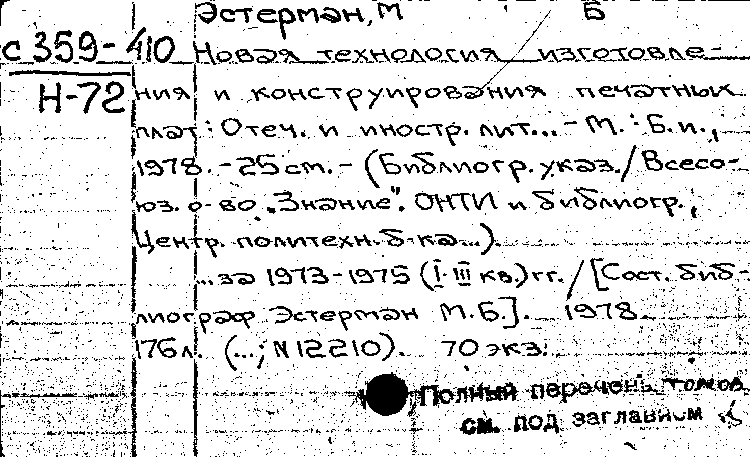 Эстерман, М Б
С 359-410 Новая технология изготовле-
Н-72 ния и конструирования печатных
плат: Отеч. и иностр. лит... - М.: Б. и.,
1978. - 25 см. - (Библиогр. указ./Всесо-
юз. о-во „Знание". ОНТИ и библиогр.,
Центр. политехн. б-ка...).
...за 1973-1975 (I-III кв.) гг. / [Сост. биб-
лиограф Эстерман М.Б.]. 1978
176 л. (...; N 12210). 70 экз.
Полный перечень томов
см. под заглавием